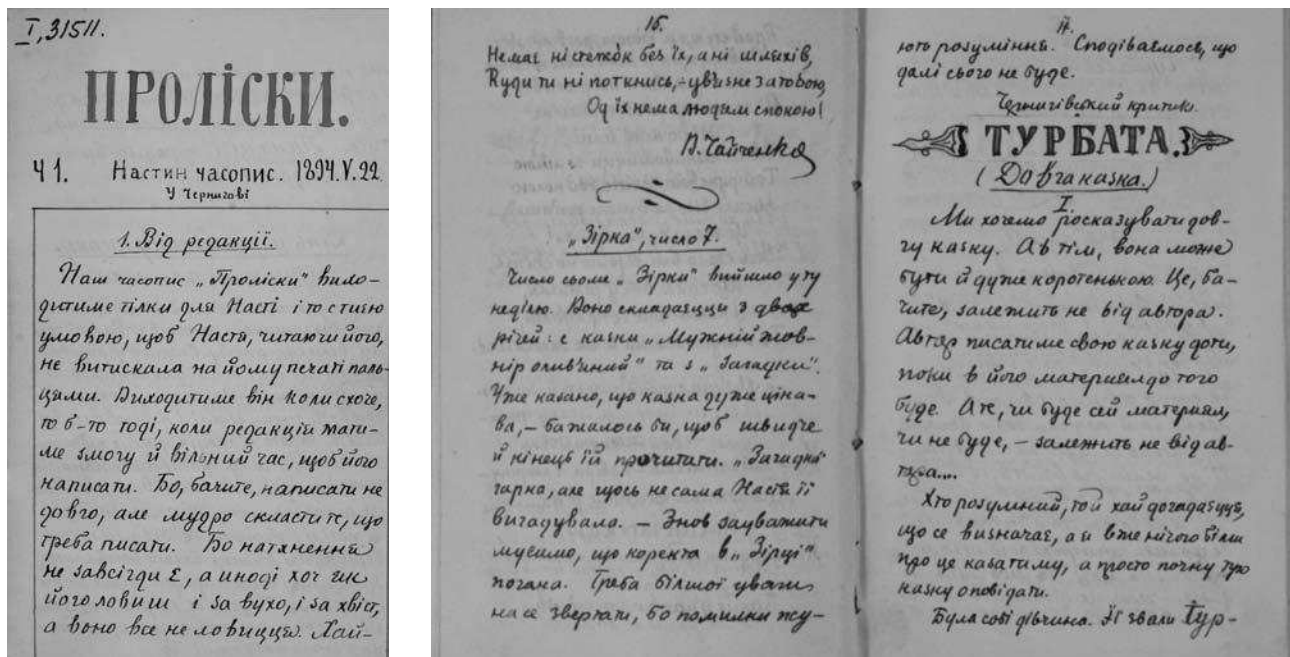 I, 31511.
ПРОЛІСКИ.
Ч 1. Настин часопис. 1894.V.22.
У Чернигові
1. Від редакції.
Наш часопис „Проліски" вихо-
дитиме тілки для Насті і то с тиєю
умовою, щоб Настя, читаючи його,
не витискала на йому печаті паль-
цями. Виходитиме він коли схоче,
то б-то тоді, коли редакція мати-
ме змогу й вільний час, щоб його
написати. Бо, бачите, написати не
довго, але мудро скласти те, що
треба писати. Бо натхнення
не завсігди є, а иноді хоч як
його ловиш і за вухо, і за хвіст,
а воно все не ловицця. Хай-
16.
Немає ні стежок без їх, а ні шляхів,
Куди ти ні поткнись, – ув'язне за тобою,
Од їх нема людям спокою!
В. Чайченко
„Зірка", число 7.
Число сьоме „Зірки" вийшло у ту
неділю. Воно складаєцця з двох
річей: с казки „Мужній жов-
нір олив'яний" та з „Загадки".
Уже казано, що казка дуже ціка-
ва, – бажалось би, щоб швидче
й кінець їй прочитати. „Загадка"
гарна, але щось не сама Настя її
вигадувала. – Знов зауважити
мусимо, що коректа в „Зірці"
погана. Треба більшої уваги
на се звертати, бо помилки псу-
17.
ють розуміння. Сподіваємось, що
далі сього не буде.
Чернигівський критик.
ТУРБАТА.
(Довга казка.)
I.
Ми хочемо росказувати дов-
гу казку. А втім, вона може
бути й дуже коротенькою. Це, ба-
чите, залежить не від автора.
Автор писатиме свою казку доти,
поки в його материял до того
буде. А те, чи буде сей материял,
чи не буде, – залежить не від ав-
тора....
Хто розумний, той хай догадаєцця,
що се визначає, а я вже нічого білш
про це казатиму, а просто почну про
казку оповідати.
Була собі дівчина. Її звали Тур-